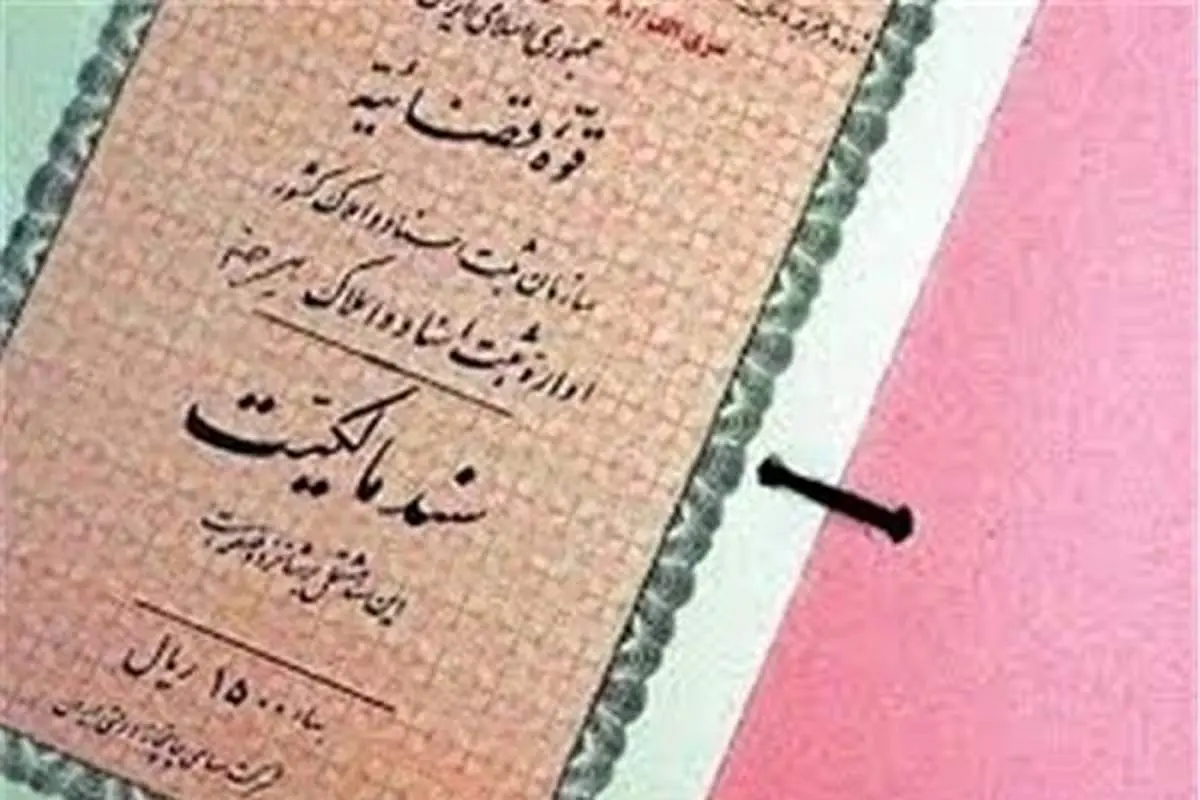 جمهوری اسلامی ایران
قوّهٔ قضائیّه
سازمان ثبت اسناد و املاک کشور
ادارهٔ ثبت اسناد و املاک
سند مالکیّت
این سند مشتمل بر شانزده صفحه است
بهاء ۱۵۰۰ ریال